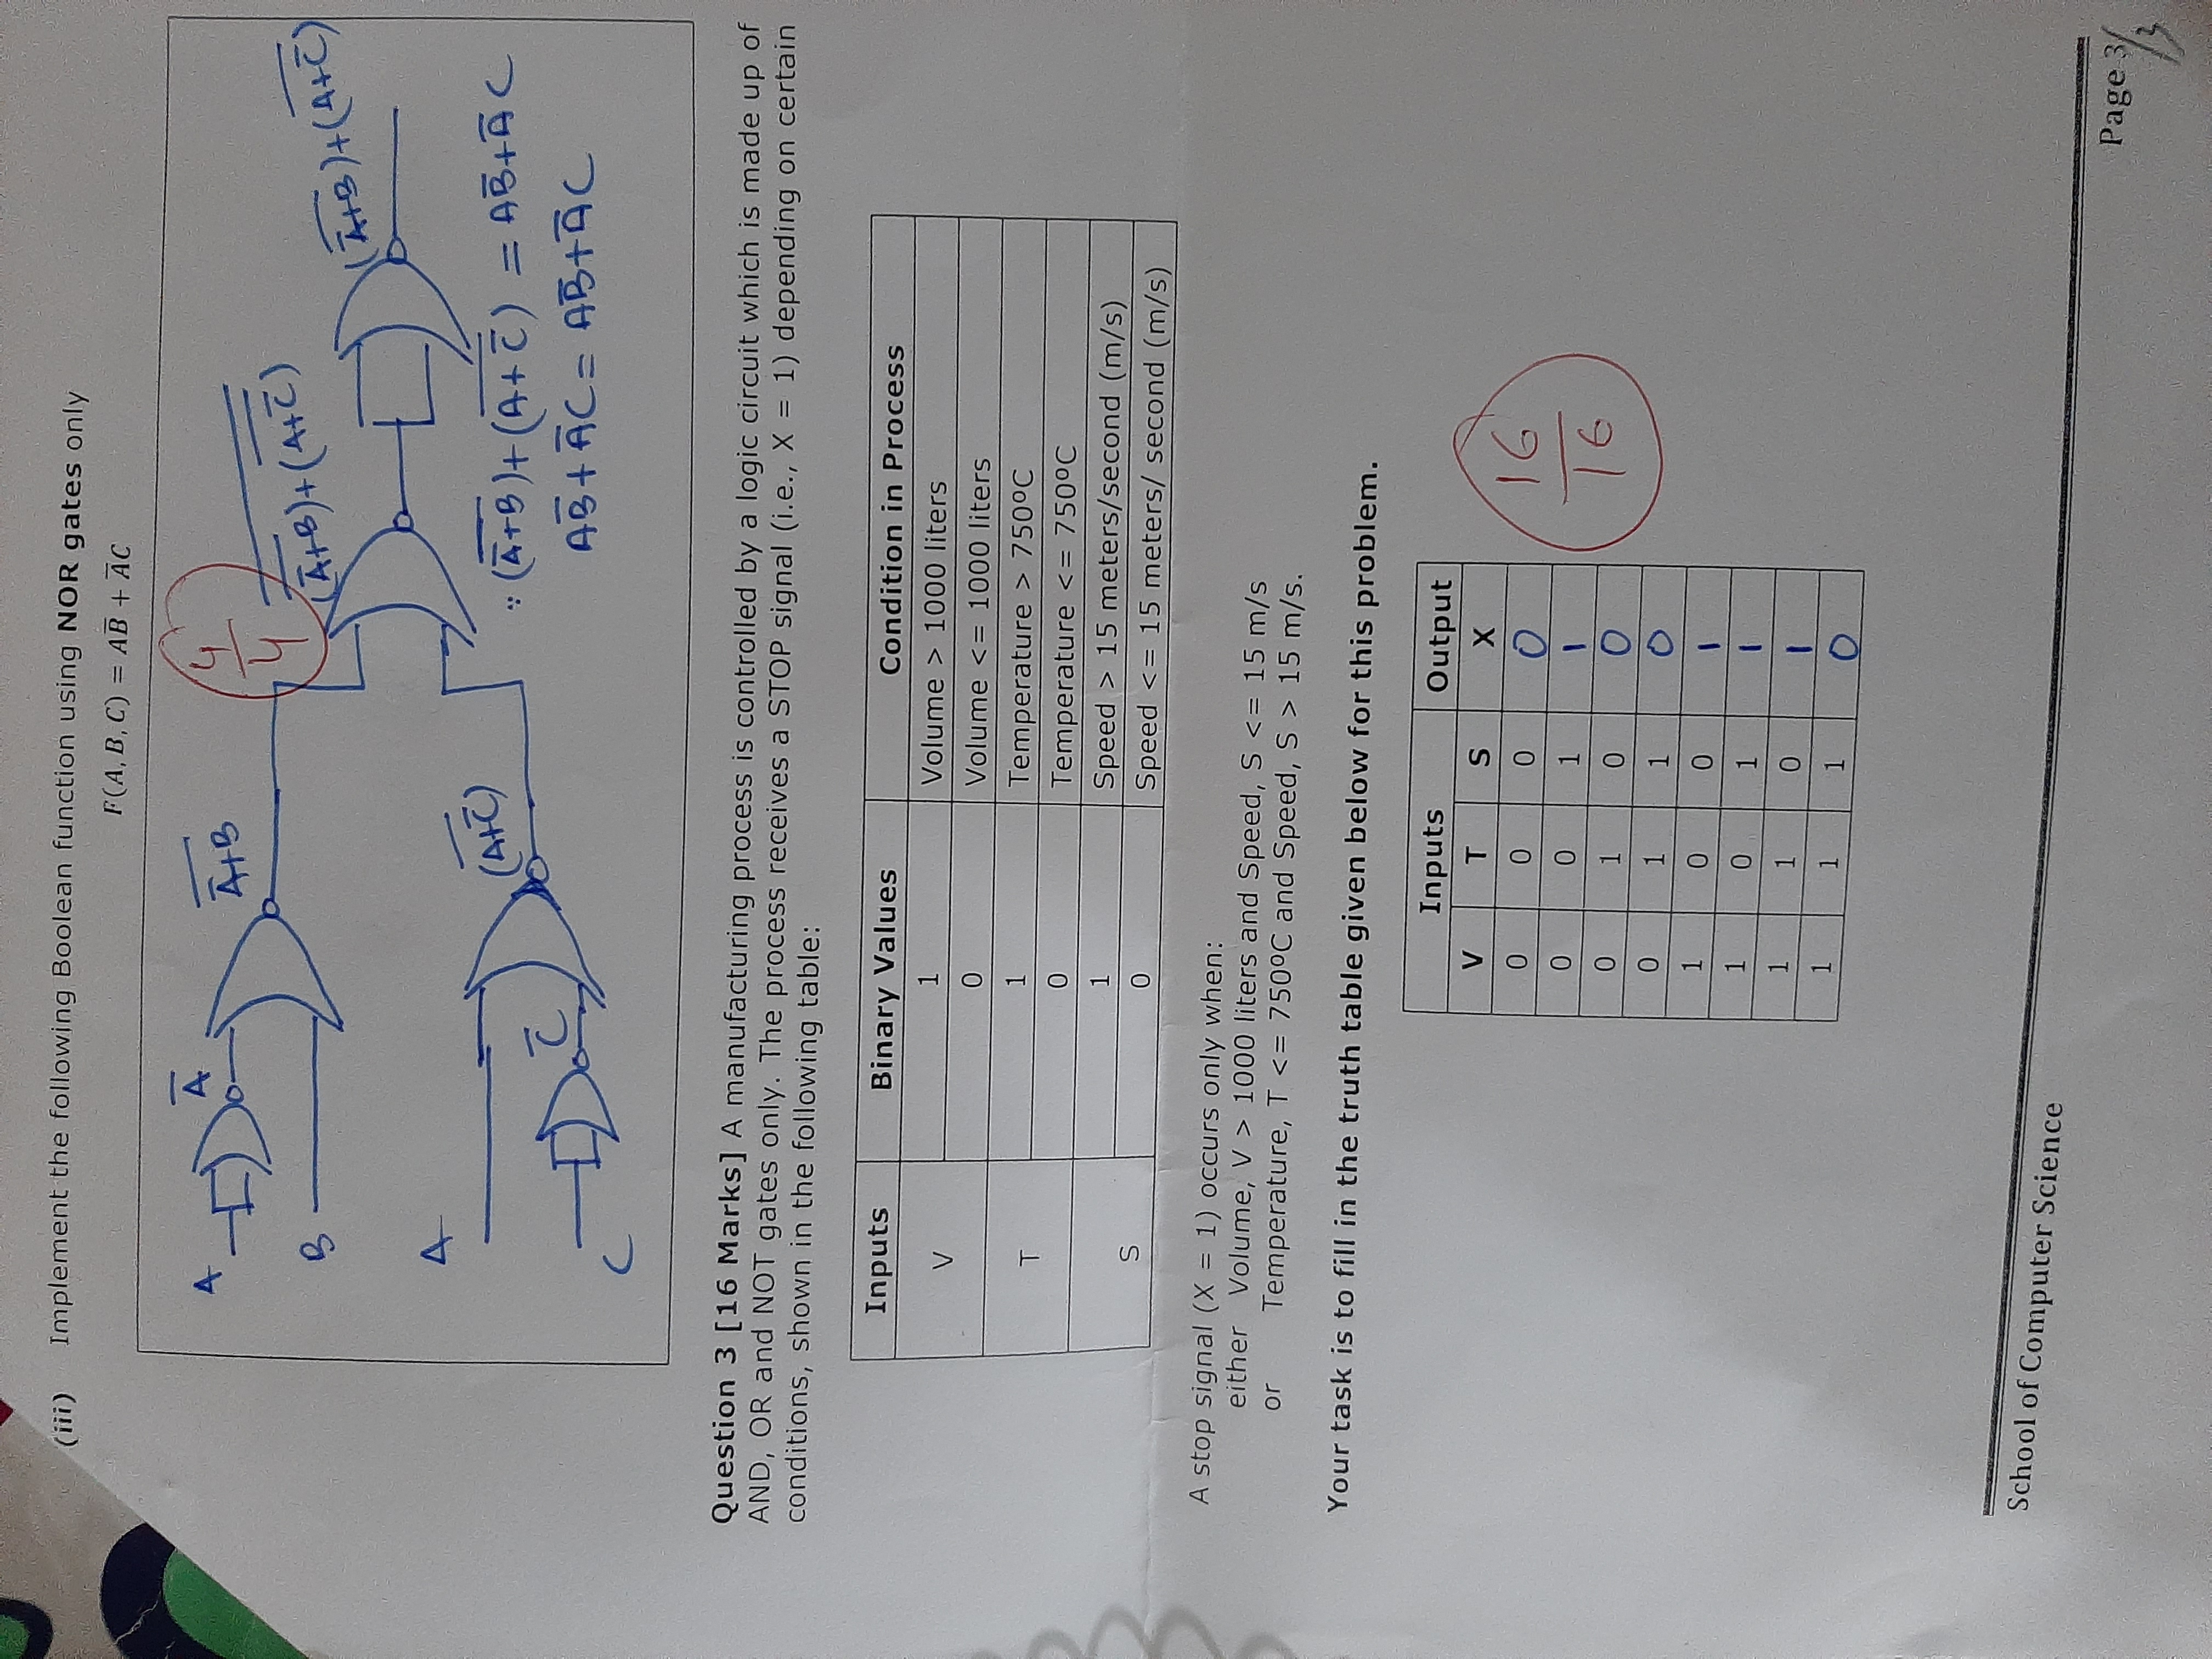 (iii) Implement the following Boolean function using NOR gates only
F(A, B, C) = AB̅ + A̅C
A
A̅
B
\overline{A̅+B}
4/4
\overline{\overline{(\overline{A̅+B})+(\overline{A+C̅})}}
(\overline{A̅+B})+(\overline{A+C̅})
A
(\overline{A+C̅})
C̅
C
∵ (\overline{A̅+B})+(\overline{A+C̅}) = AB̅+A̅C
AB̅+A̅C = AB̅+A̅C
Question 3 [16 Marks] A manufacturing process is controlled by a logic circuit which is made up of
AND, OR and NOT gates only. The process receives a STOP signal (i.e., X = 1) depending on certain
conditions, shown in the following table:
Inputs Binary Values Condition in Process
V 1 Volume > 1000 liters
0 Volume <= 1000 liters
T 1 Temperature > 750ºC
0 Temperature <= 750ºC
S 1 Speed > 15 meters/second (m/s)
0 Speed <= 15 meters/ second (m/s)
A stop signal (X = 1) occurs only when:
either Volume, V > 1000 liters and Speed, S <= 15 m/s
or Temperature, T <= 750ºC and Speed, S > 15 m/s.
Your task is to fill in the truth table given below for this problem.
Inputs Output
V T S X
0 0 0 0
0 0 1 1
0 1 0 0
0 1 1 0
1 0 0 1
1 0 1 1
1 1 0 1
1 1 1 0
16/16
School of Computer Science
Page 3/3